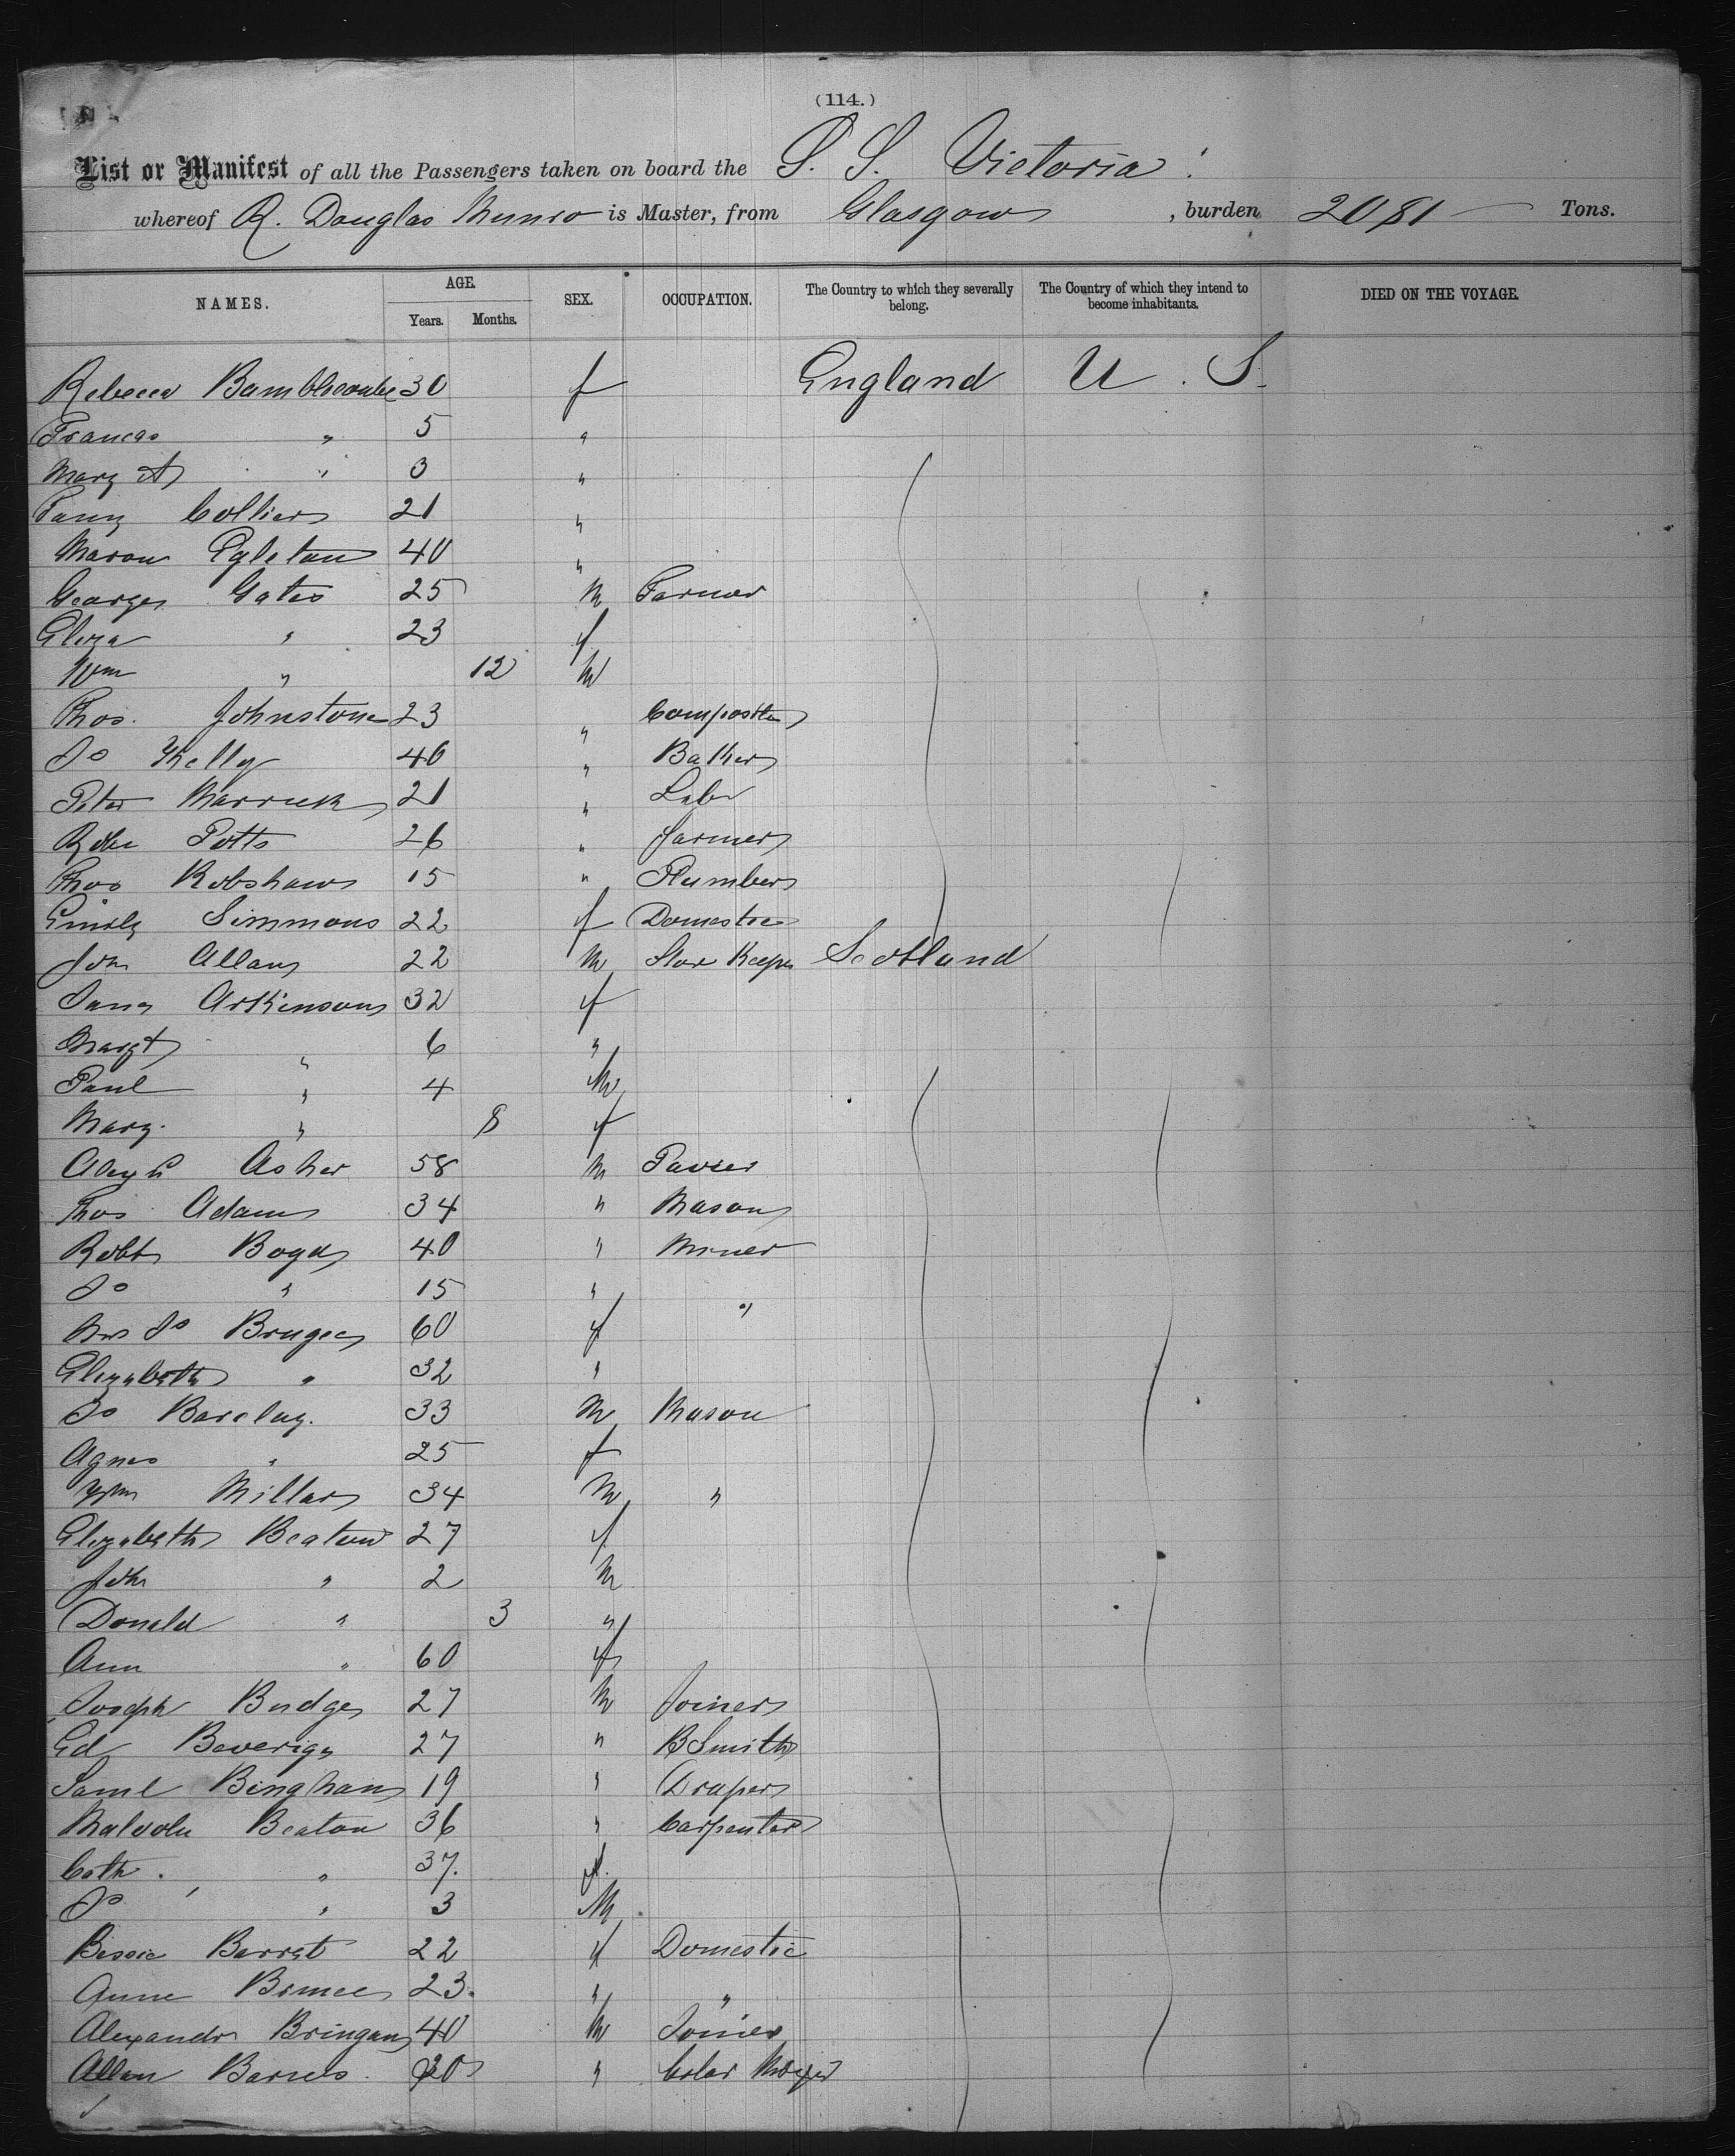 (114.)
List or Manifest of all the Passengers taken on board the S. S. Victoria
whereof R. Douglas Munro is Master, from Glasgow, burden 2081 Tons.
NAMES. AGE. Years. Months. SEX. OCCUPATION. The Country to which they severally belong. The Country of which they intend to become inhabitants. DIED ON THE VOYAGE.
Rebecca 30 f England U. S.
Frances " 5 "
Mary A " 3 "
Fanny Collier 21 "
Egleton 40 "
George Gates 25 M Farmer
Eliza " 23 f
Wm " 12 M
Thos. Johnstone 23 " Compositor
Do Kelly 40 " Baker
Peter Marrick 21 " Labr
Potts 26 " Farmer
Thos Robshaw 15 " Plumber
Emily Simmons 22 f Domestic
John Allan 22 M Store Keeper Scotland
Jane Atkinson 32 f
Margt " 6 "
Paul " 4 M
Mary " 8 f
Asher 58 M
Thos Adams 34 " Mason
Robt Boyd 40 " Miner
Do " 15 " "
Mrs Do 60 f
Elizabeth " 32 "
Do Barclay. 33 M Mason
Agnes " 25 f
Wm Millar 34 M "
Elizabeth Beaton 27 f
John " 2 M
Donald " 3 "
Ann " 60 f
Joseph Budge 27 M Joiner
Ed Beverigy 27 " BSmith
Saml Bingham 19 " Draper
Malcolm Beaton 36 " Carpenter
Cath. " 37. f.
Do " 3 M
Bessie Barrat 22 f Domestic
Anne 23. " "
Alexandr Bringan 40 M Joiner
Allan 20 "